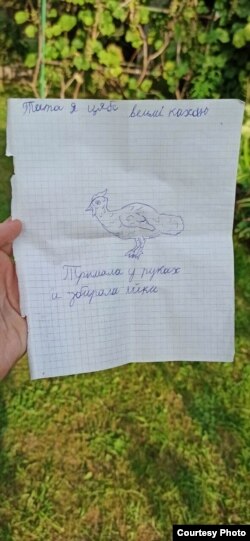 Тата я цябе вельмі кахаю
Трымала у руках
и збирала яйки
Courtesy Photo